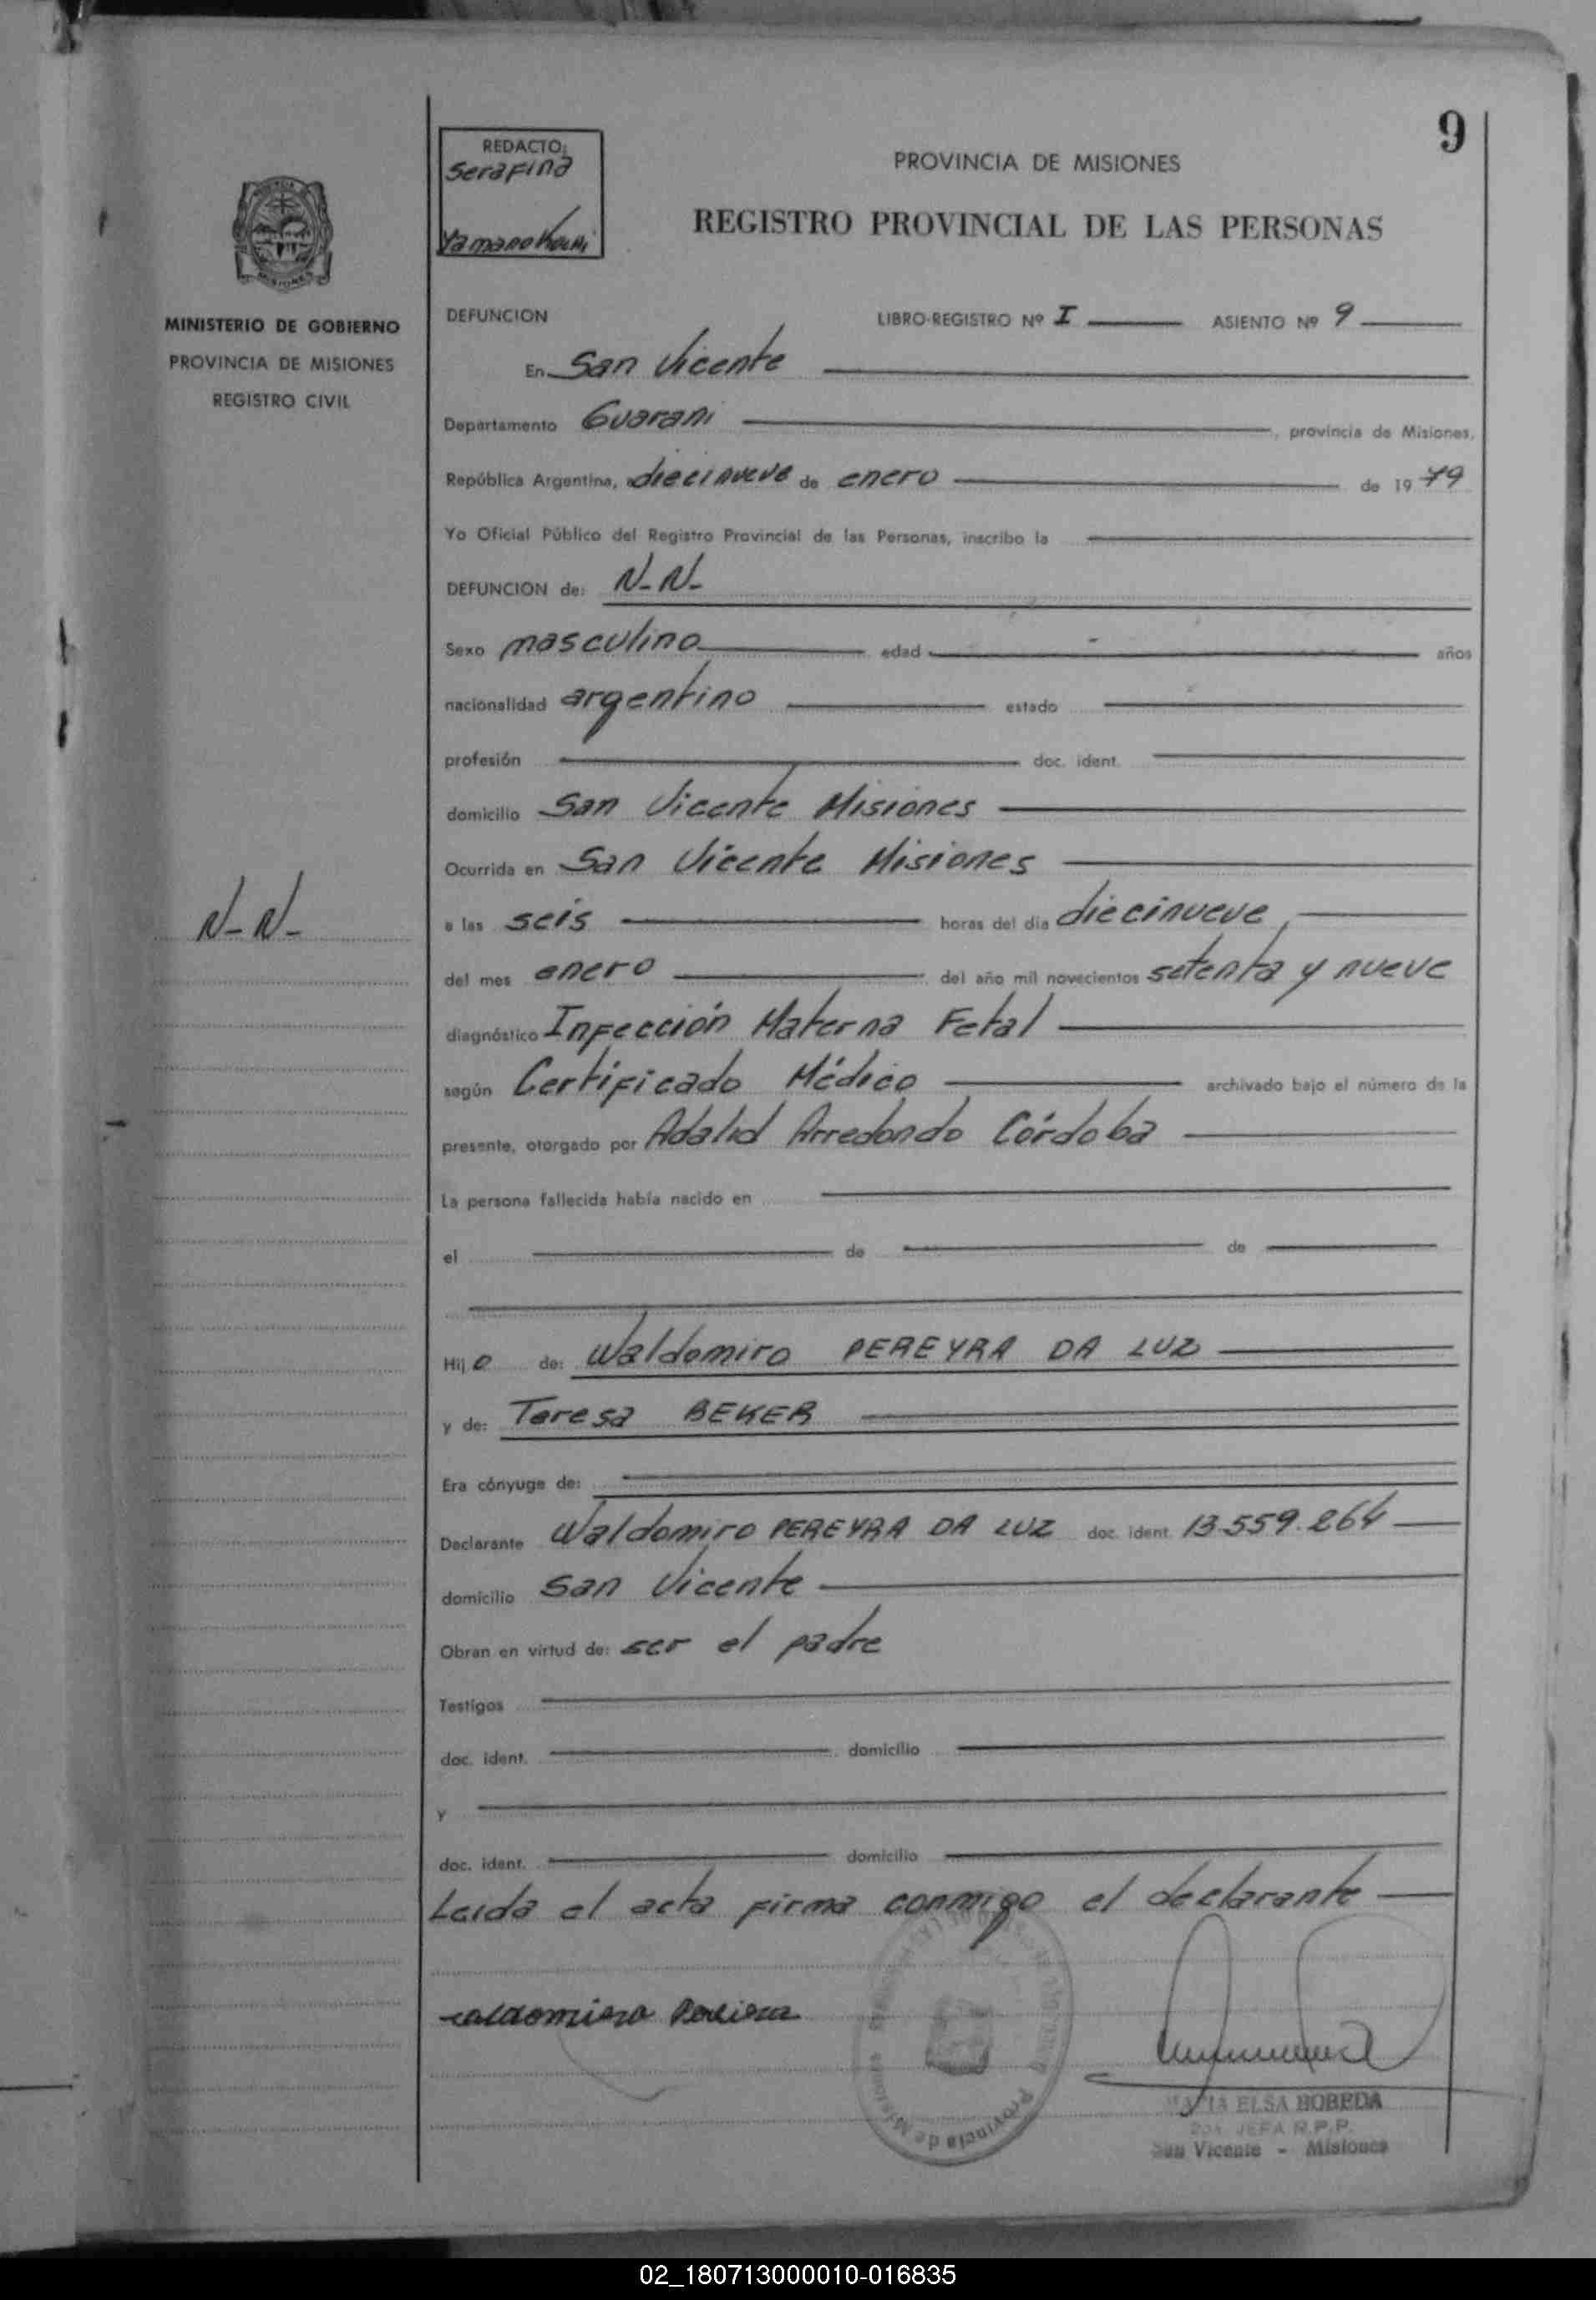 9
REDACTO:
Serafina
Yamanokuchi
PROVINCIA DE MISIONES
REGISTRO PROVINCIAL DE LAS PERSONAS
MINISTERIO DE GOBIERNO
PROVINCIA DE MISIONES
REGISTRO CIVIL
DEFUNCION LIBRO-REGISTRO Nº I ASIENTO Nº 9
En San Vicente
Departamento Guarani, provincia de Misiones,
República Argentina, diecinueve de enero de 1979
Yo Oficial Público del Registro Provincial de las Personas, inscribo la
DEFUNCION de: N-N-
Sexo masculino edad años
nacionalidad argentino estado
profesión doc. ident.
domicilio San Vicente Misiones
Ocurrida en San Vicente Misiones
N-N-
a las seis horas del día diecinueve
del mes enero del año mil novecientos setenta y nueve
diagnóstico Infección Materna Fetal
según Certificado Médico archivado bajo el número de la
presente, otorgado por Adalid Arredondo Córdoba
La persona fallecida había nacido en
el de de
Hijo de: Waldomiro PEREYRA DA LUZ
y de: Teresa BEKER
Era cónyuge de:
Declarante Waldomiro PEREYRA DA LUZ doc. ident. 13.559.264
domicilio San Vicente
Obran en virtud de: ser el padre
Testigos
doc. ident. domicilio
y
doc. ident. domicilio
Leida el acta firma conmigo el declarante
Provincia de Misiones
MARIA ELSA BOBEDA
JEFA R.P.P.
San Vicente - Misiones
02_180713000010-016835